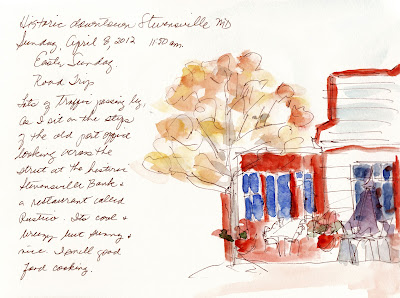 Historic downtown Stevensville MD
Sunday, April 8, 2012 11:50 am.
Easter Sunday.
Road Trip
Lots of Traffic passing by,
as I sit on the steps
of the old post office
looking across the
street at the historic
Stevensville Bank &
a restaurant called
Rustico. Its cool &
breezy but sunny &
nice. I smell good
food cooking.